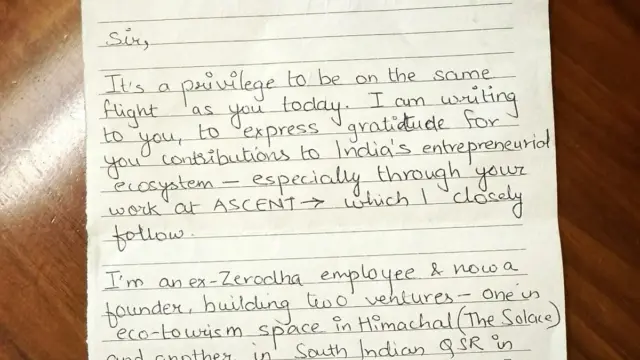 Sir,
It's a privilege to be on the same
flight as you today. I am writing
to you, to express gratitude for
you contributions to India's entrepreneurial
ecosystem — especially through your
work at ASCENT → which I closely
follow.
I'm an ex-Zerodha employee & now a
founder, building two ventures — one in
eco-tourism space in Himachal (The Solace)
and another in South Indian QSR in